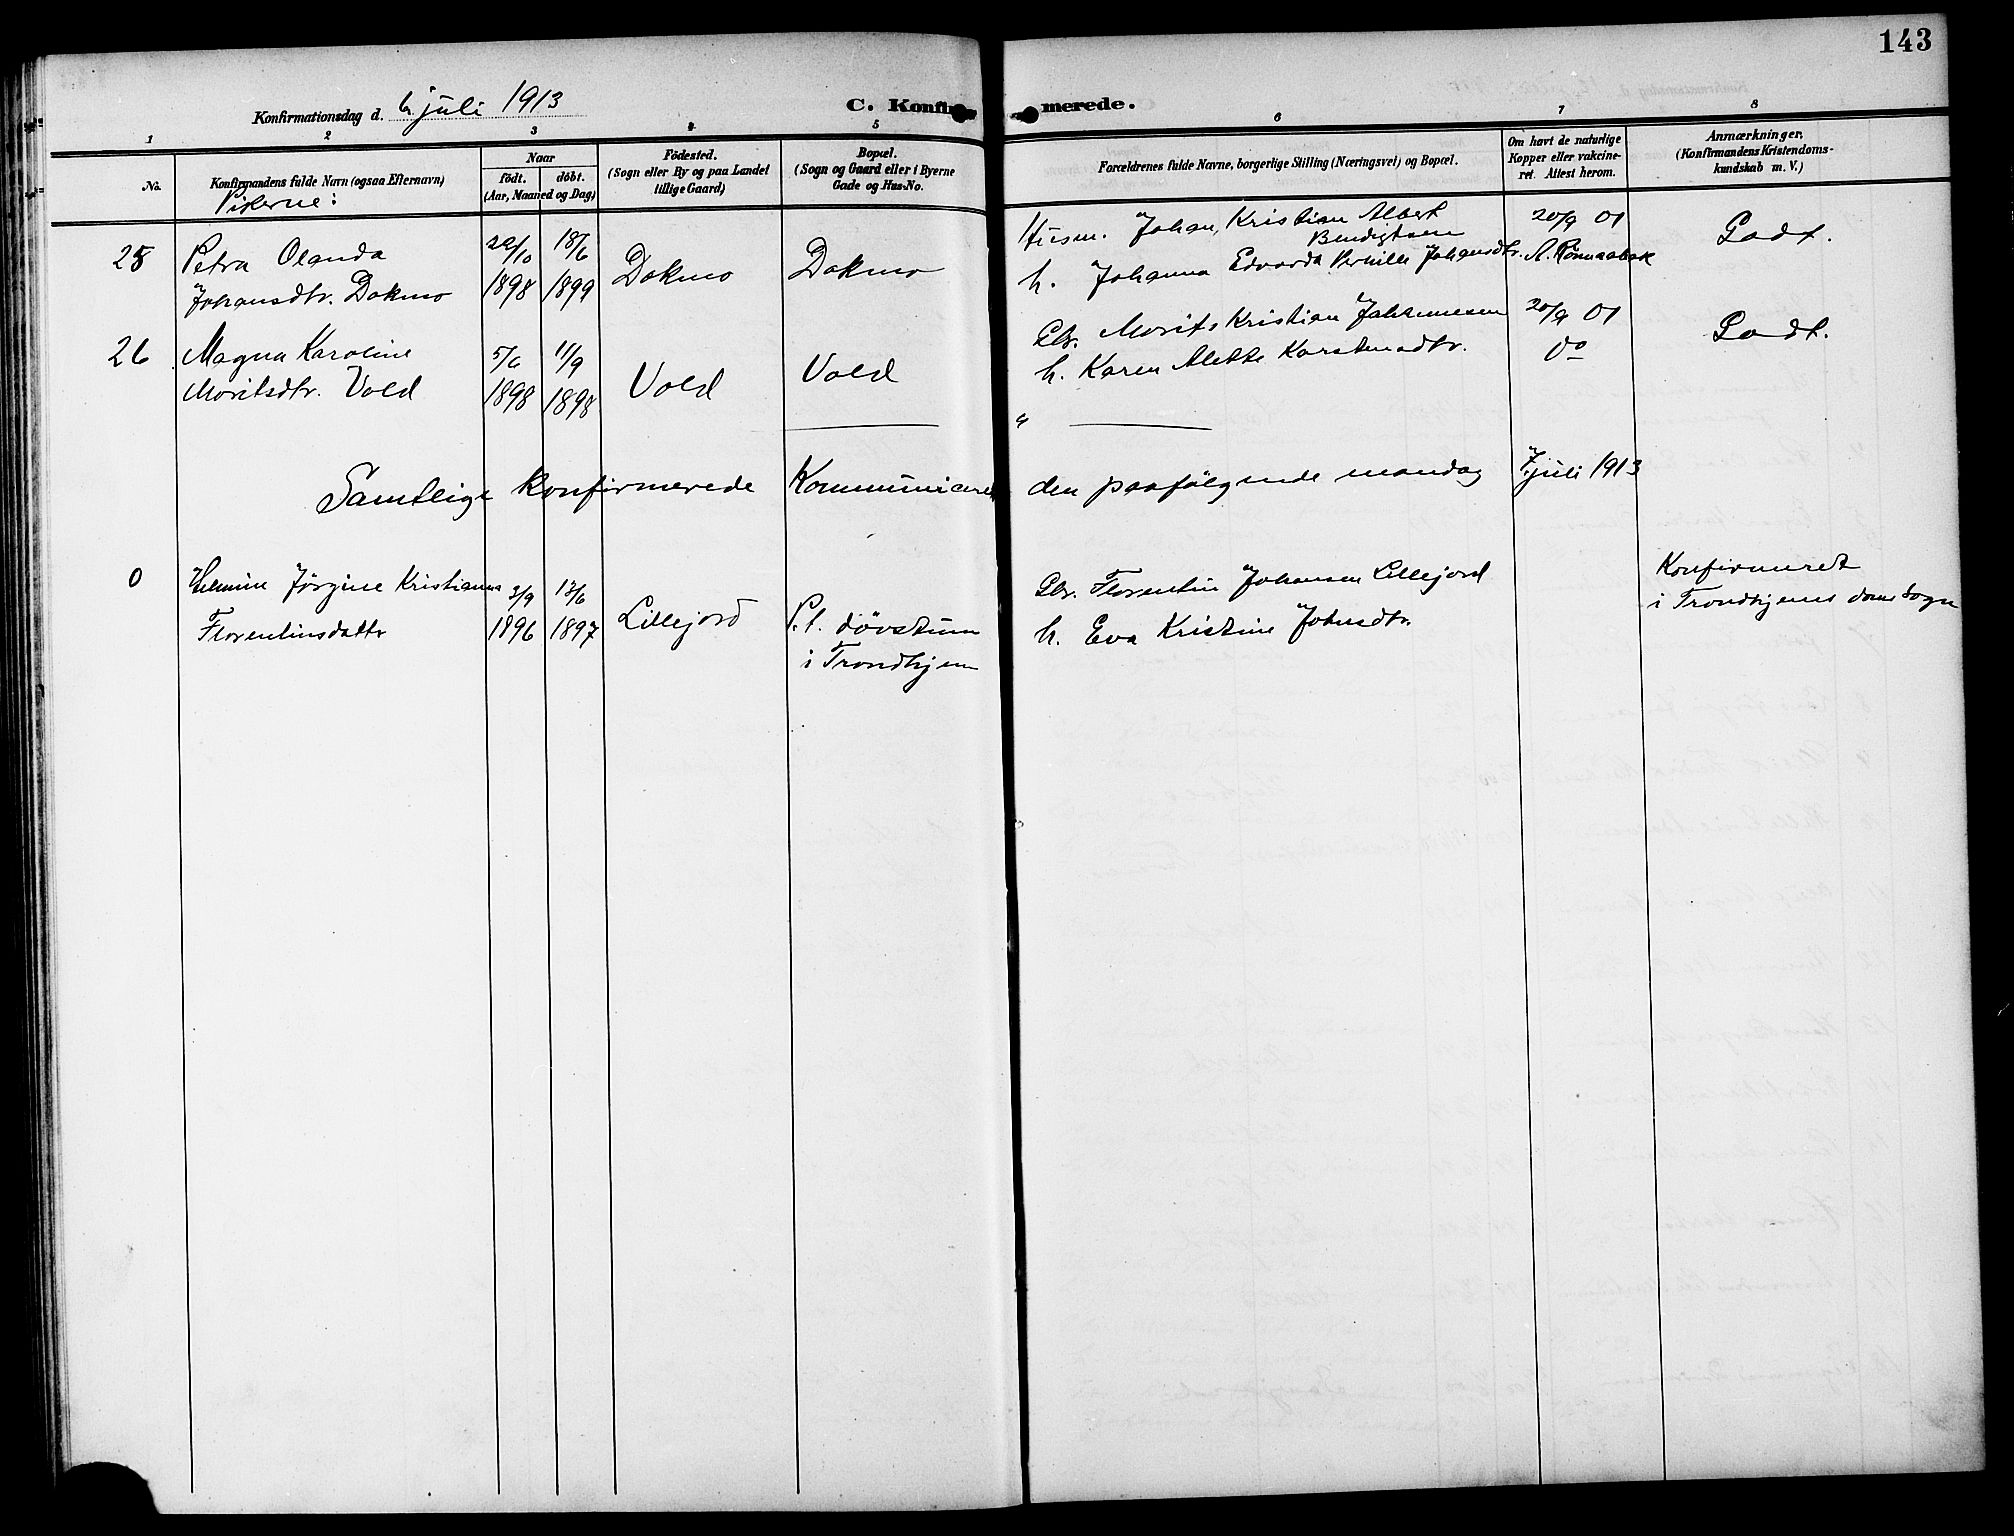 143
Konfirmationsdag d. 6 juli 1913
C. Konfirmerede.
1 2 3 4 5 6 7 8
No.
Konfirmandens fulde Navn (ogsaa Efternavn)
Naar
födt. döbt.
(Aar, Maaned og Dag)
Födested.
(Sogn eller By og paa Landet
tillige Gaard)
Bopæl.
(Sogn og Gaard eller i Byerne
Gade og Hus-No.
Forældrenes fulde Navne, borgerlige Stilling (Næringsvei) og Bopæl.
Om havt de naturlige
Kopper eller vakcine-
ret. Attest herom.
Anmærkninger.
(Konfirmandens Kristendoms-
kundskab m. V.)
Pikerne:
25 Petra Olanda 29/10 18/6 Dokmo Dokmo Husm. Johan Kristian Albert 20/9 01 Godt.
Bendigtsen
Johansdtr. Dokmo 1898 1899 h. Johanna Edvarda Pernille Johansdtr. A. Rönnaabek
26 Magna Karoline 5/6 11/9 Vold Vold Gbr. Morits Kristian Johannesen 20/9 01 Godt.
Moritsdtr. Vold 1898 1898 h. Karen Alette Karstensdtr. do
"
Samtlige konfirmerede kommuniceret den paafölgende mandag 7. juli 1913
0 Helmine Jörgine Kristianna 3/9 13/6 Lillejord P.t. dövstum Gbr. Florentin Johansen Lillejord Konfirmeret
Florentinsdattr 1896 1897 i Trondhjem h. Eva Kristine Johnsdtr. i Trondhjems domsogn